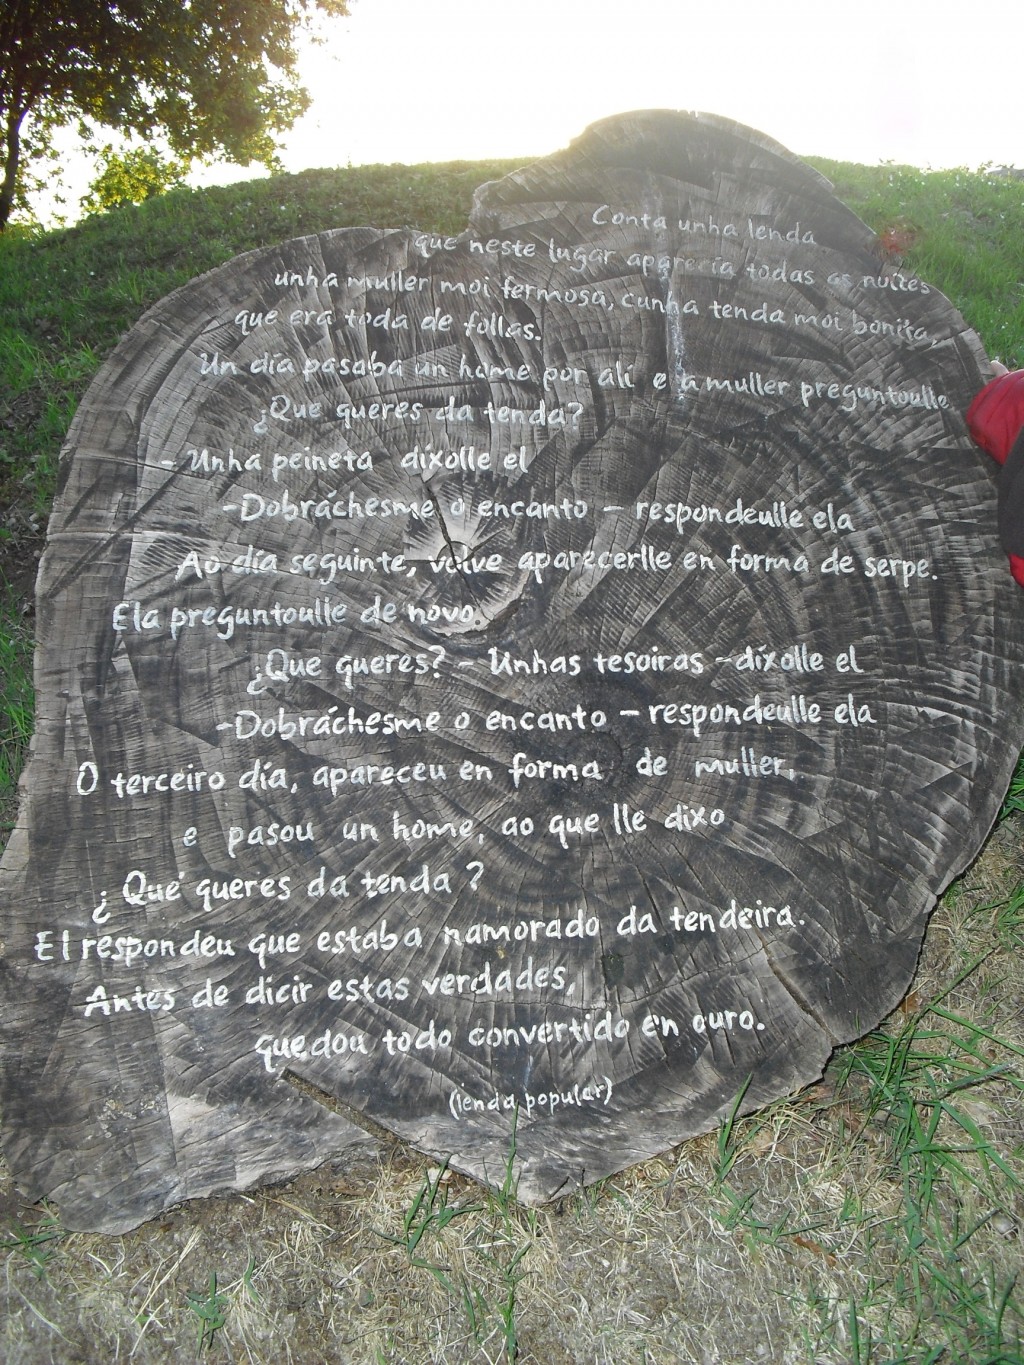 Conta unha lenda
que neste lugar aparecía todas as noites
unha muller moi fermosa, cunha tenda moi bonita,
que era toda de follas.
Un día pasaba un home por alí e a muller preguntoulle
¿Que queres da tenda?
- Unha peineta dixolle el
-Dobráchesme o encanto - respondeulle ela
Ao día seguinte, volve aparecerlle en forma de serpe.
Ela preguntoulle de novo.
¿Que queres? - Unhas tesoiras -díxolle el
-Dobráchesme o encanto - respondeulle ela
O terceiro día, apareceu en forma de muller,
e pasou un home, ao que lle dixo
¿Que queres da tenda?
El respondeu que estaba namorado da tendeira.
Antes de dicir estas verdades,
quedou todo convertido en ouro.
(lenda popular)